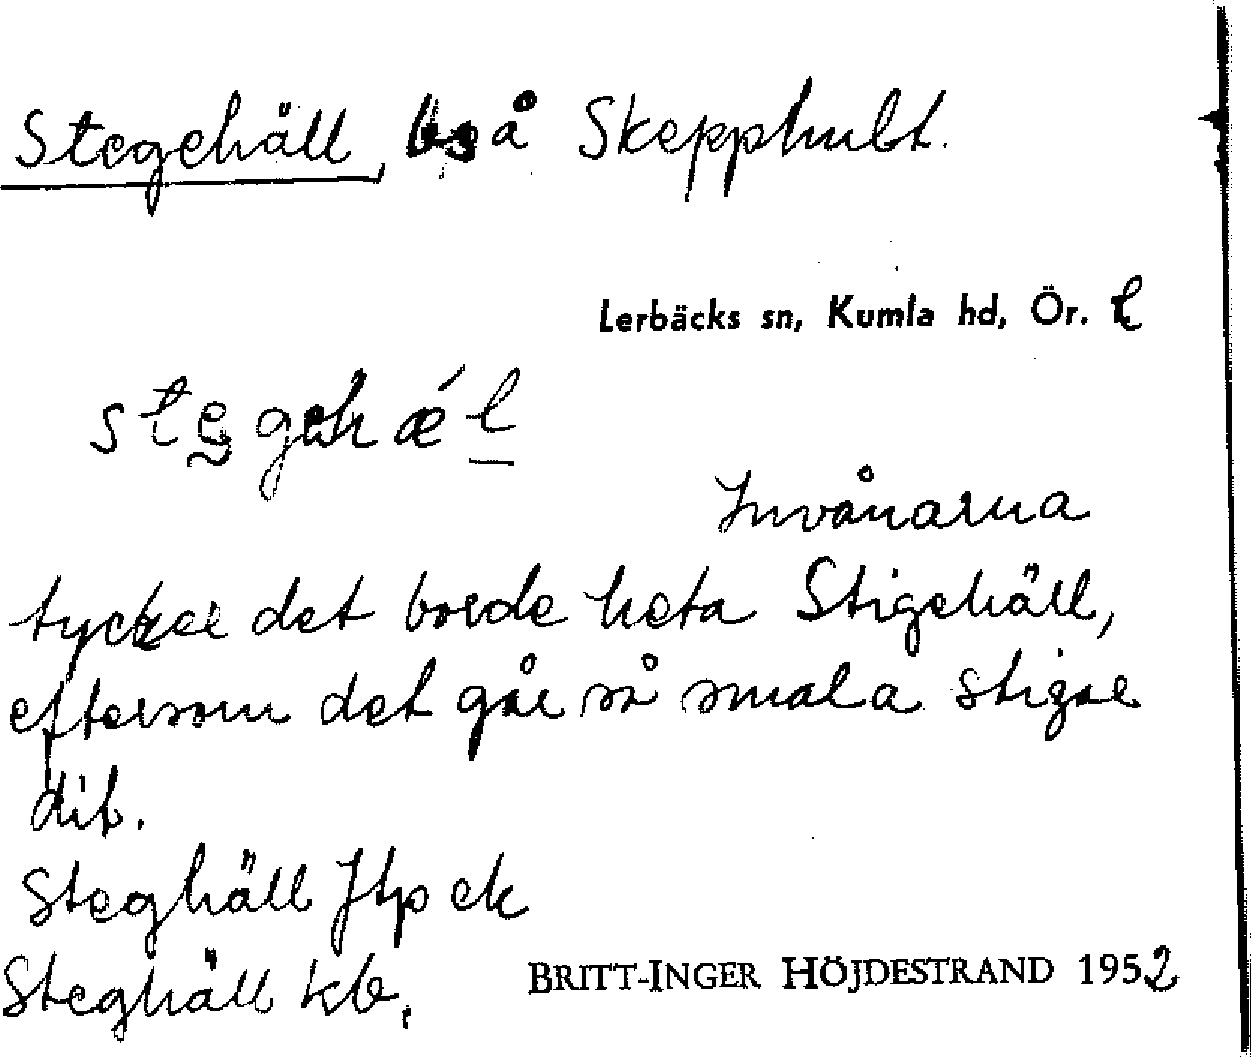 Stegehäll, bs å Skepphult.
Lerbäcks sn, Kumla hd, Ör. l
stegehæ´l
Invånarna
tycker det borde heta Stigehäll,
eftersom det går så smala stigar
dit.
Steghäll Jtp ek
Steghäll kb.
BRITT-INGER HÖJDESTRAND 1952